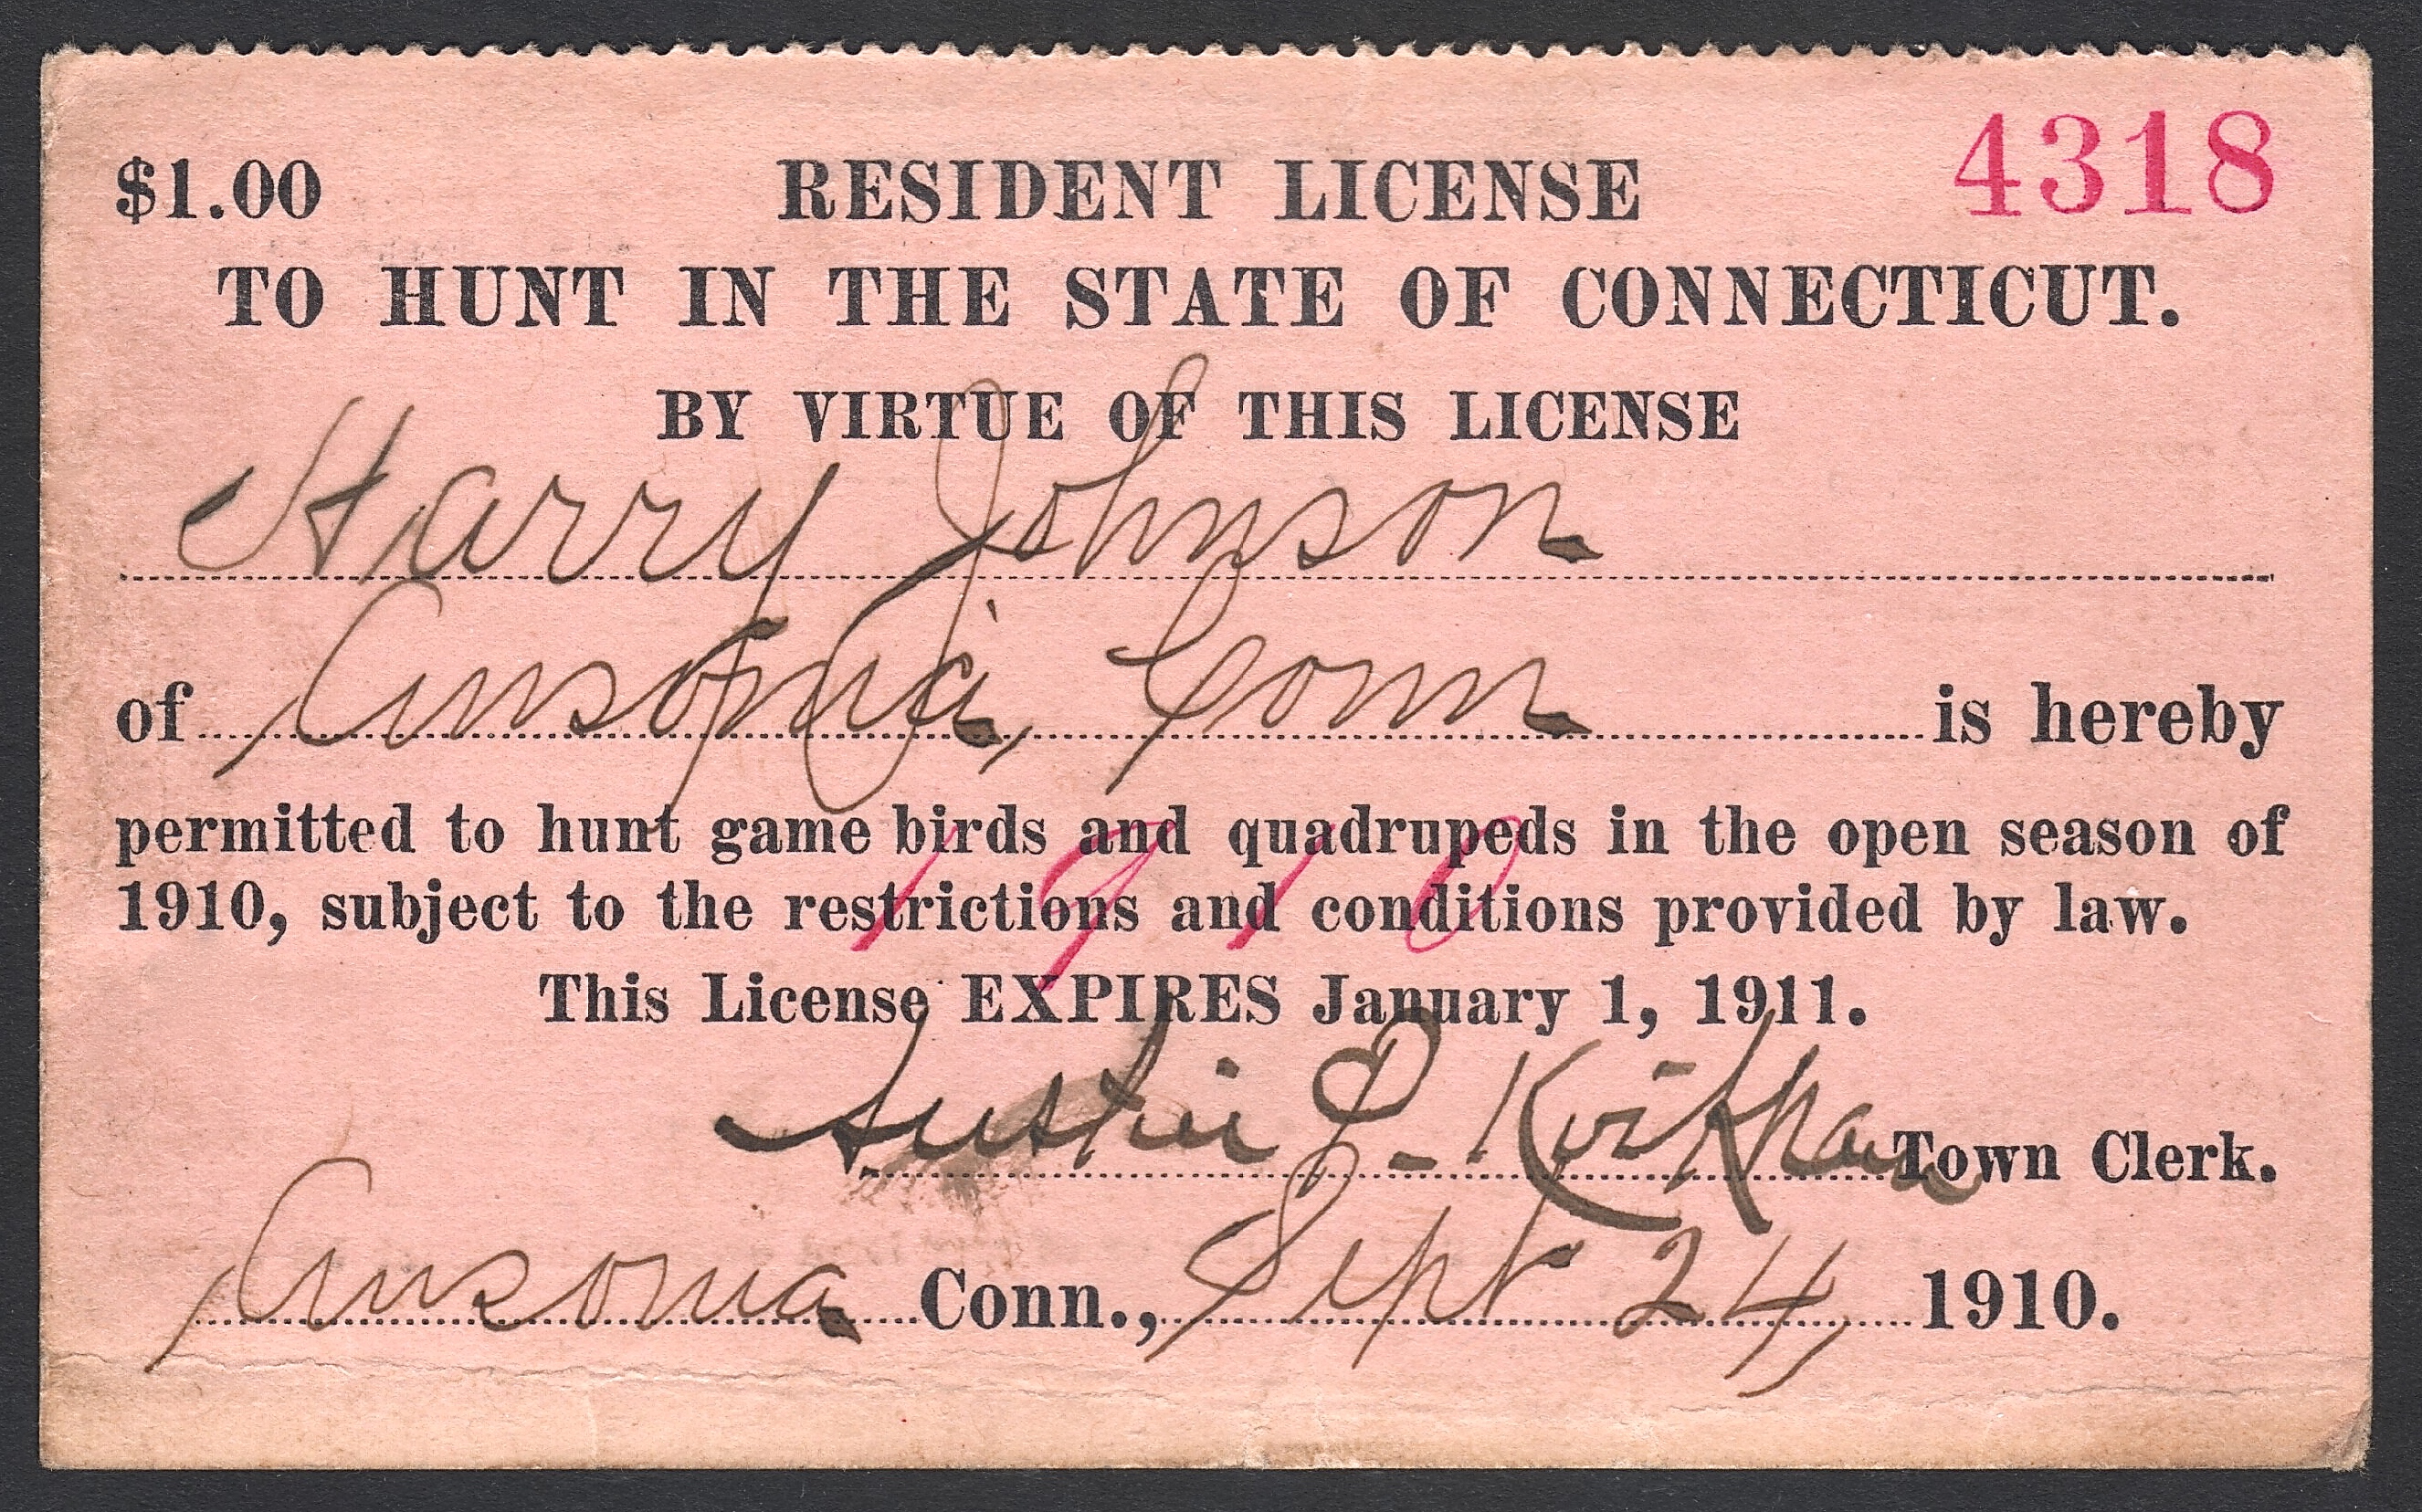 $1.00 RESIDENT LICENSE 4318
TO HUNT IN THE STATE OF CONNECTICUT.
BY VIRTUE OF THIS LICENSE
Harry Johnson
of Ansonia, Conn is hereby
permitted to hunt game birds and quadrupeds in the open season of
1910
1910, subject to the restrictions and conditions provided by law.
This License EXPIRES January 1, 1911.
Town Clerk.
Ansonia Conn., Sept 24, 1910.